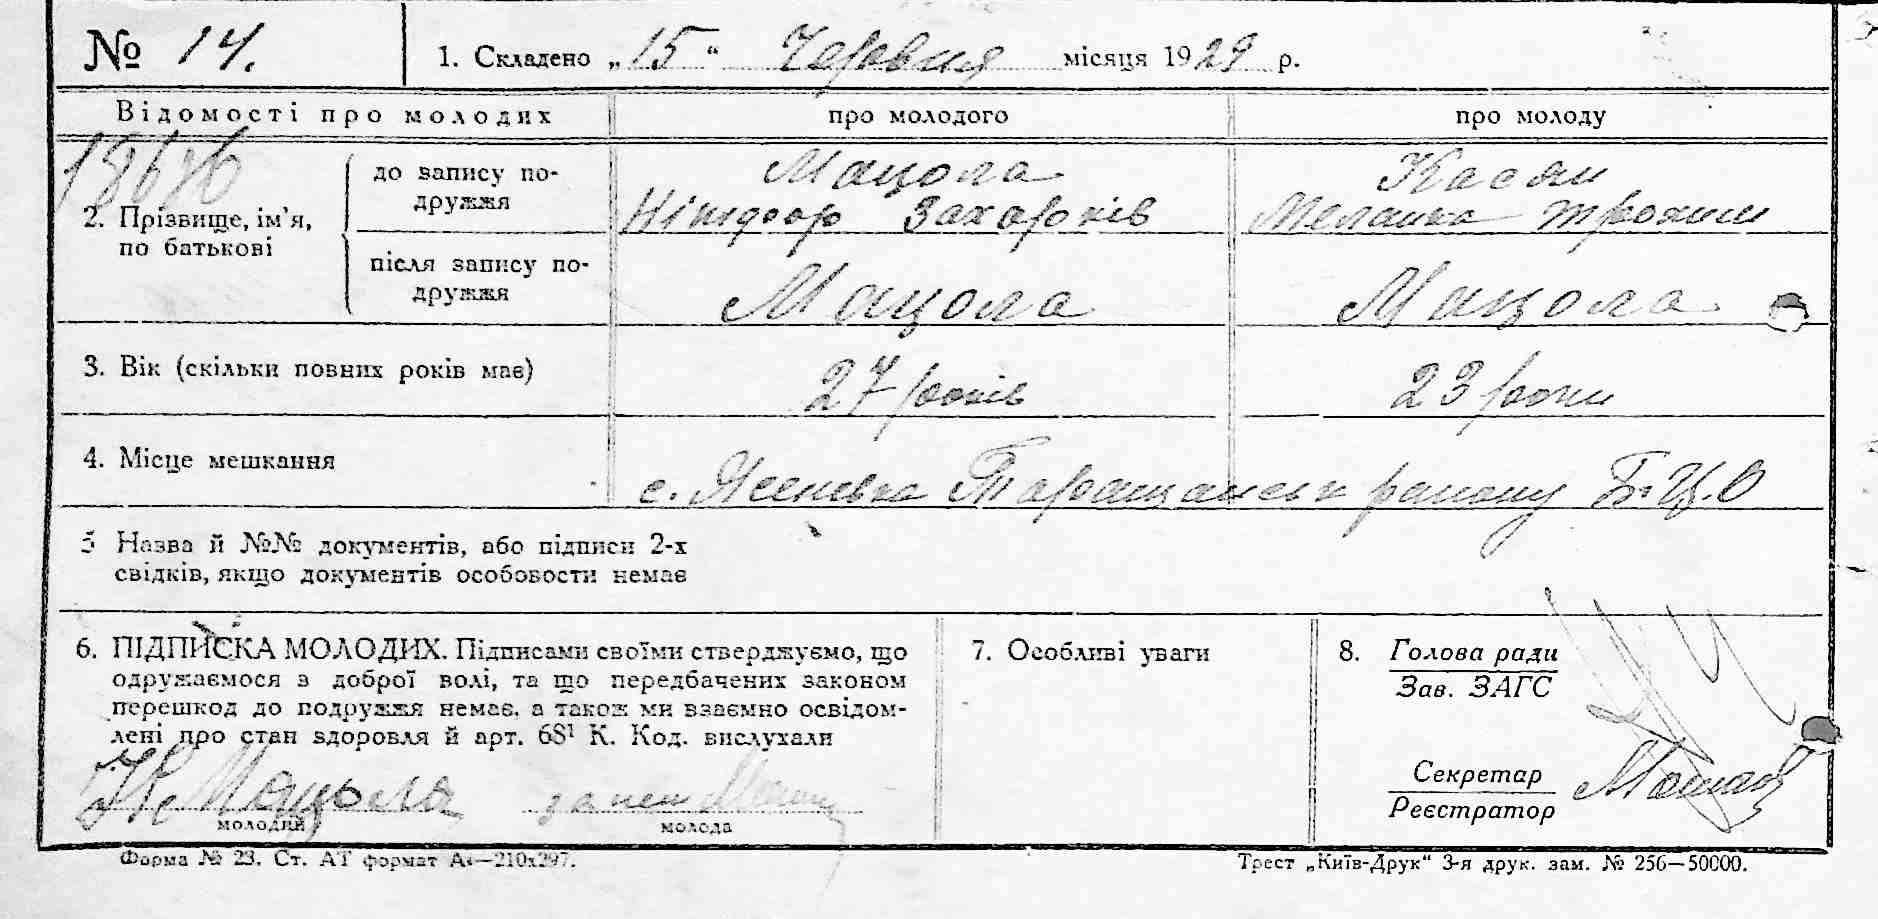 № 14. 1. Складено „15“ Червня місяця 1929 р.
Відомості про молодих про молодого про молоду
2. Прізвище, ім’я, по батькові
до запису по-
дружжя
Мацола
Касян
Нікіфор Захарків
Меланка Трохим
після запису по-
дружжя
Мацола
Мацола
3. Вік (скільки повних років має) 27 років 23 роки
4. Місце мешкання с. Ясенівка Таращанськ району Б.Ц.О
5 Назва й №№ документів, або підписи 2-х
свідків, якщо документів особовости немає
6. ПІДПИСКА МОЛОДИХ. Підписами своїми стверджуємо, що
одружаємося з доброї волі, та що передбачених законом
перешкод до подружжя немає, а також ми взаємно освідом-
лені про стан здоровля й арт. 68¹ К. Код. вислухали
Мацола
молодий
молода
7. Особливі уваги
8. Голова ради
Зав. ЗАГС
Секретар
Реєстратор
Форма № 23. Ст. АТ формат А₄—210х297.
Трест „Київ-Друк“ 3-я друк. зам. № 256—50000.